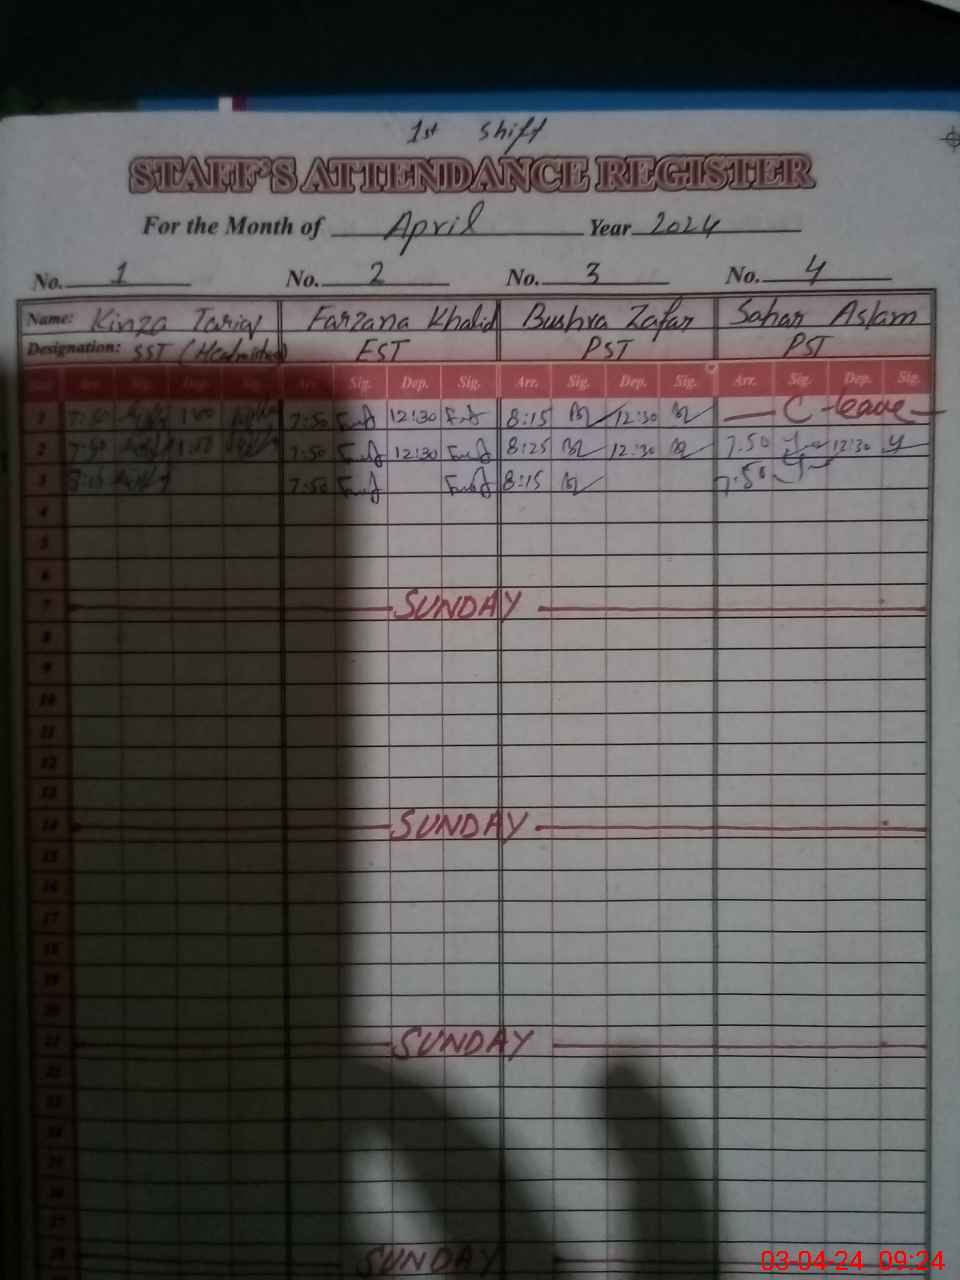 1st Shift
STAFF'S ATTENDANCE REGISTER
For the Month of April Year 2024
No. 1 No. 2 No. 3 No. 4
Name: Kinza Tariq Farzana Khalid Bushra Zafar Sahar Aslam
Designation: SST (Headmistress) EST PST PST
Arr. Sig. Dep. Sig. Arr. Sig. Dep. Sig. Arr. Sig. Dep. Sig. Arr. Sig. Dep. Sig.
1 7:50 7:50 12:30 8:15 12:30 C-leave
2 7:50 1:50 7:50 12:30 8:25 12:30 7.50 12:30
3 8:15 7:50 8:15 7:50
4
5
6
7 SUNDAY
8
9
10
11
12
13
14 SUNDAY
15
16
17
18
19
20
21 SUNDAY
22
23
24
25
26
27
28 SUNDAY
03-04-24 09:24